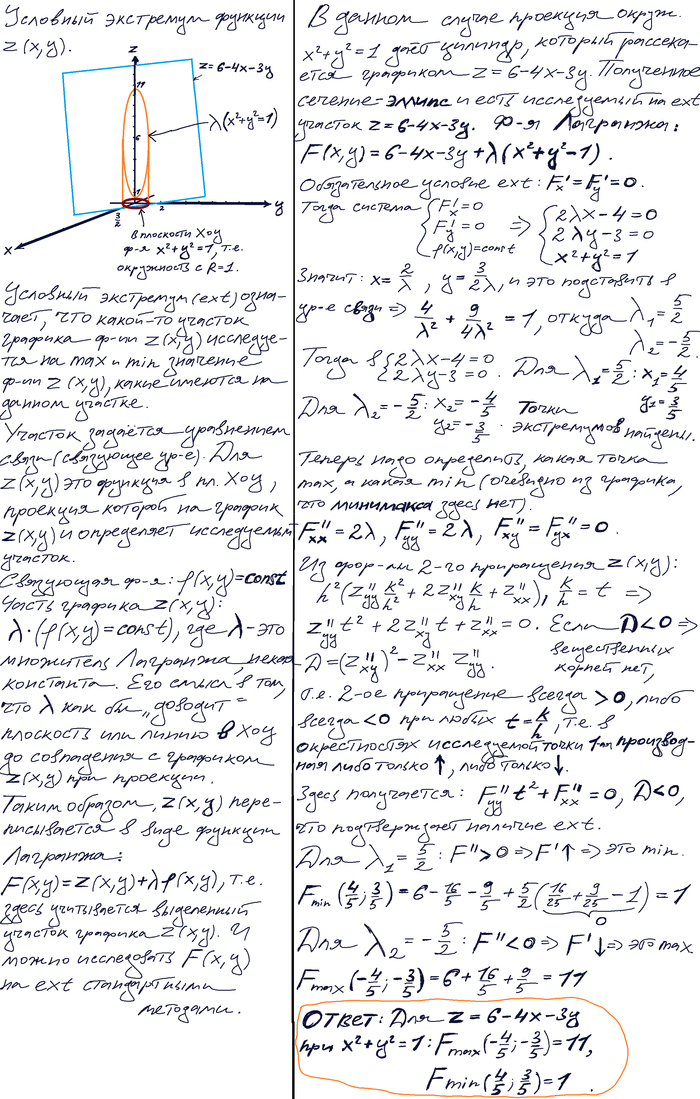 Условный экстремум функции
z(x,y).
z
z=6-4x-3y
11
λ(x²+y²=1)
6
1
3/2
2
y
x
в плоскости Xоy
ф-я x²+y²=1, т.е.
окружность с R=1.
Условный экстремум (ext) озна-
чает, что какой-то участок
графика ф-ии z(x,y) исследуе-
тся на max и min значение
ф-ии z(x,y), какие имеются на
данном участке.
Участок задаётся уравнением
связи (связующее ур-е). Для
z(x,y) это функция в пл. Xoy,
проекция которой на график
z(x,y) и определяет исследуемый
участок.
Связующая ф-я: φ(x,y)=const
Часть графика z(x,y):
λ·(φ(x,y)=const), где λ-это
множитель Лагранжа, некая
константа. Его смысл в том,
что λ как бы "доводит"
плоскость или линию в Xoy
до совпадения с графиком
z(x,y) при проекции.
Таким образом, z(x,y) пере-
писывается в виде функции
Лагранжа:
F(x,y)=z(x,y)+λφ(x,y), т.е.
здесь учитывается выделенный
участок графика z(x,y). И
можно исследовать F(x,y)
на ext стандартными
методами.
В данном случае проекция окруж.
x²+y²=1 даёт цилиндр, который рассека-
ется графиком z=6-4x-3y. Полученное
сечение=эллипс и есть исследуемый на ext
участок z=6-4x-3y. Ф-я Лагранжа:
F(x,y)=6-4x-3y+λ(x²+y²-1).
Обязательное условие ext: F'x=F'y=0.
Тогда система { F'x=0 ⇒ { 2λx-4=0
F'y=0 2λy-3=0
φ(x,y)=const x²+y²=1
Значит: x=2/λ, y=3/2λ, и это подставить в
ур-е связи ⇒ 4/λ² + 9/4λ² = 1, откуда λ₁=5/2
λ₂=-5/2
Тогда в { 2λx-4=0 Для λ₁=5/2: x₁=4/5
2λy-3=0. y₁=3/5
Для λ₂=-5/2: x₂=-4/5 Точки
y₂=-3/5. экстремумов найдены.
Теперь надо определить, какая точка
max, а какая min (очевидно из графика,
что минимакса здесь нет).
F''xx=2λ, F''yy=2λ, F''xy=F''yx=0.
Из фор-лы 2-го приращения z(x,y):
h²(z''yy k²/h² + 2z''xy k/h + z''xx), k/h=t ⇒
z''yy t² + 2z''xy t + z''xx = 0. Если D<0 ⇒
D=(z''xy)²-z''xx z''yy. вещественных
корней нет,
т.е. 2-ое приращение всегда >0, либо
всегда <0 при любых t=k/h, т.е. в
окрестностях исследуемой точки 1-ая производ-
ная либо только ↑, либо только ↓.
Здесь получается: F''yy t²+F''xx=0, D<0,
что подтверждает наличие ext.
Для λ₁=5/2: F''>0 ⇒ F'↑ ⇒ это min.
Fmin(4/5;3/5)=6-16/5-9/5+5/2(16/25+9/25-1)=1
0
Для λ₂=-5/2: F''<0 ⇒ F'↓ ⇒ это max
Fmax(-4/5;-3/5)=6+16/5+9/5=11
Ответ: Для z=6-4x-3y
при x²+y²=1: Fmax(-4/5;-3/5)=11,
Fmin(4/5;3/5)=1.